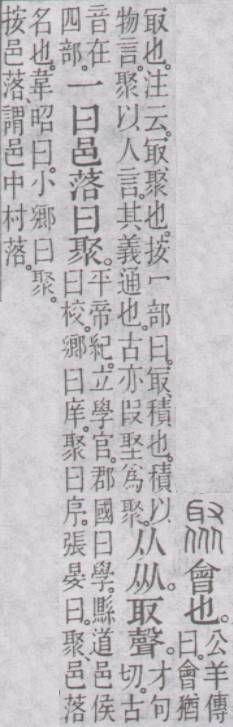 聚會也。公羊傳
曰。會猶
冣也。注云。冣、聚也。按冖部曰。冣、積也。積以
物言。聚以人言。其義通也。古亦叚埾爲聚。
从㐺。取聲。才句
切。古
音在
四部。
一曰邑落曰聚。平帝紀。立學官。郡國曰學。縣道邑侯
曰校。鄉曰庠。聚曰序。張晏曰。聚、邑落
名也。韋昭曰。小鄉曰聚。
按邑落、謂邑中村落。